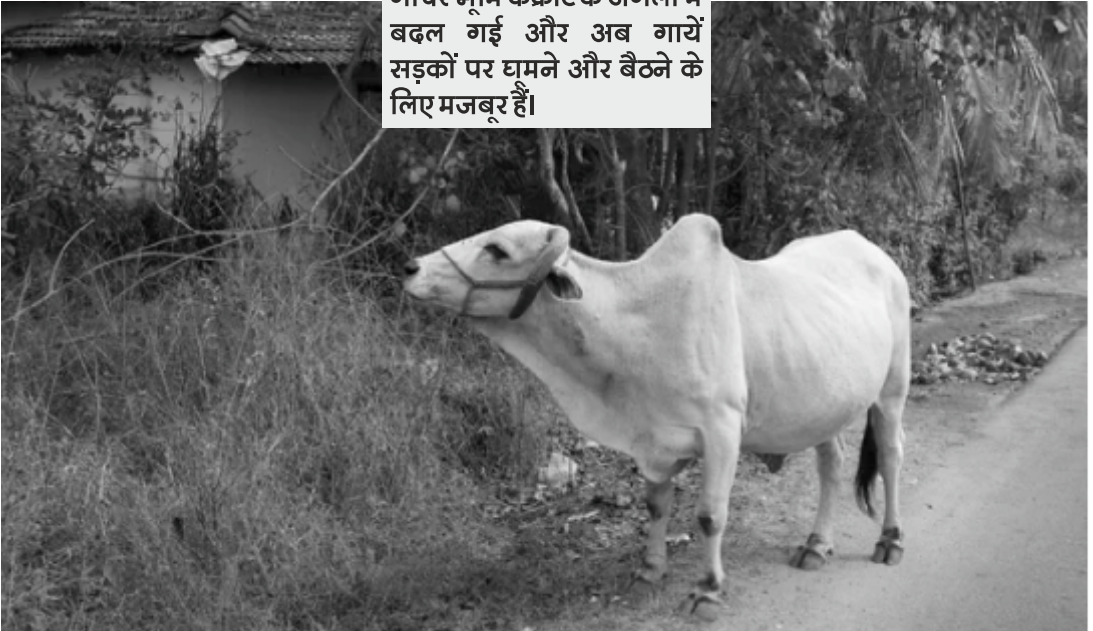 बदल गई और अब गायें
सड़कों पर घूमने और बैठने के
लिए मजबूर हैं।